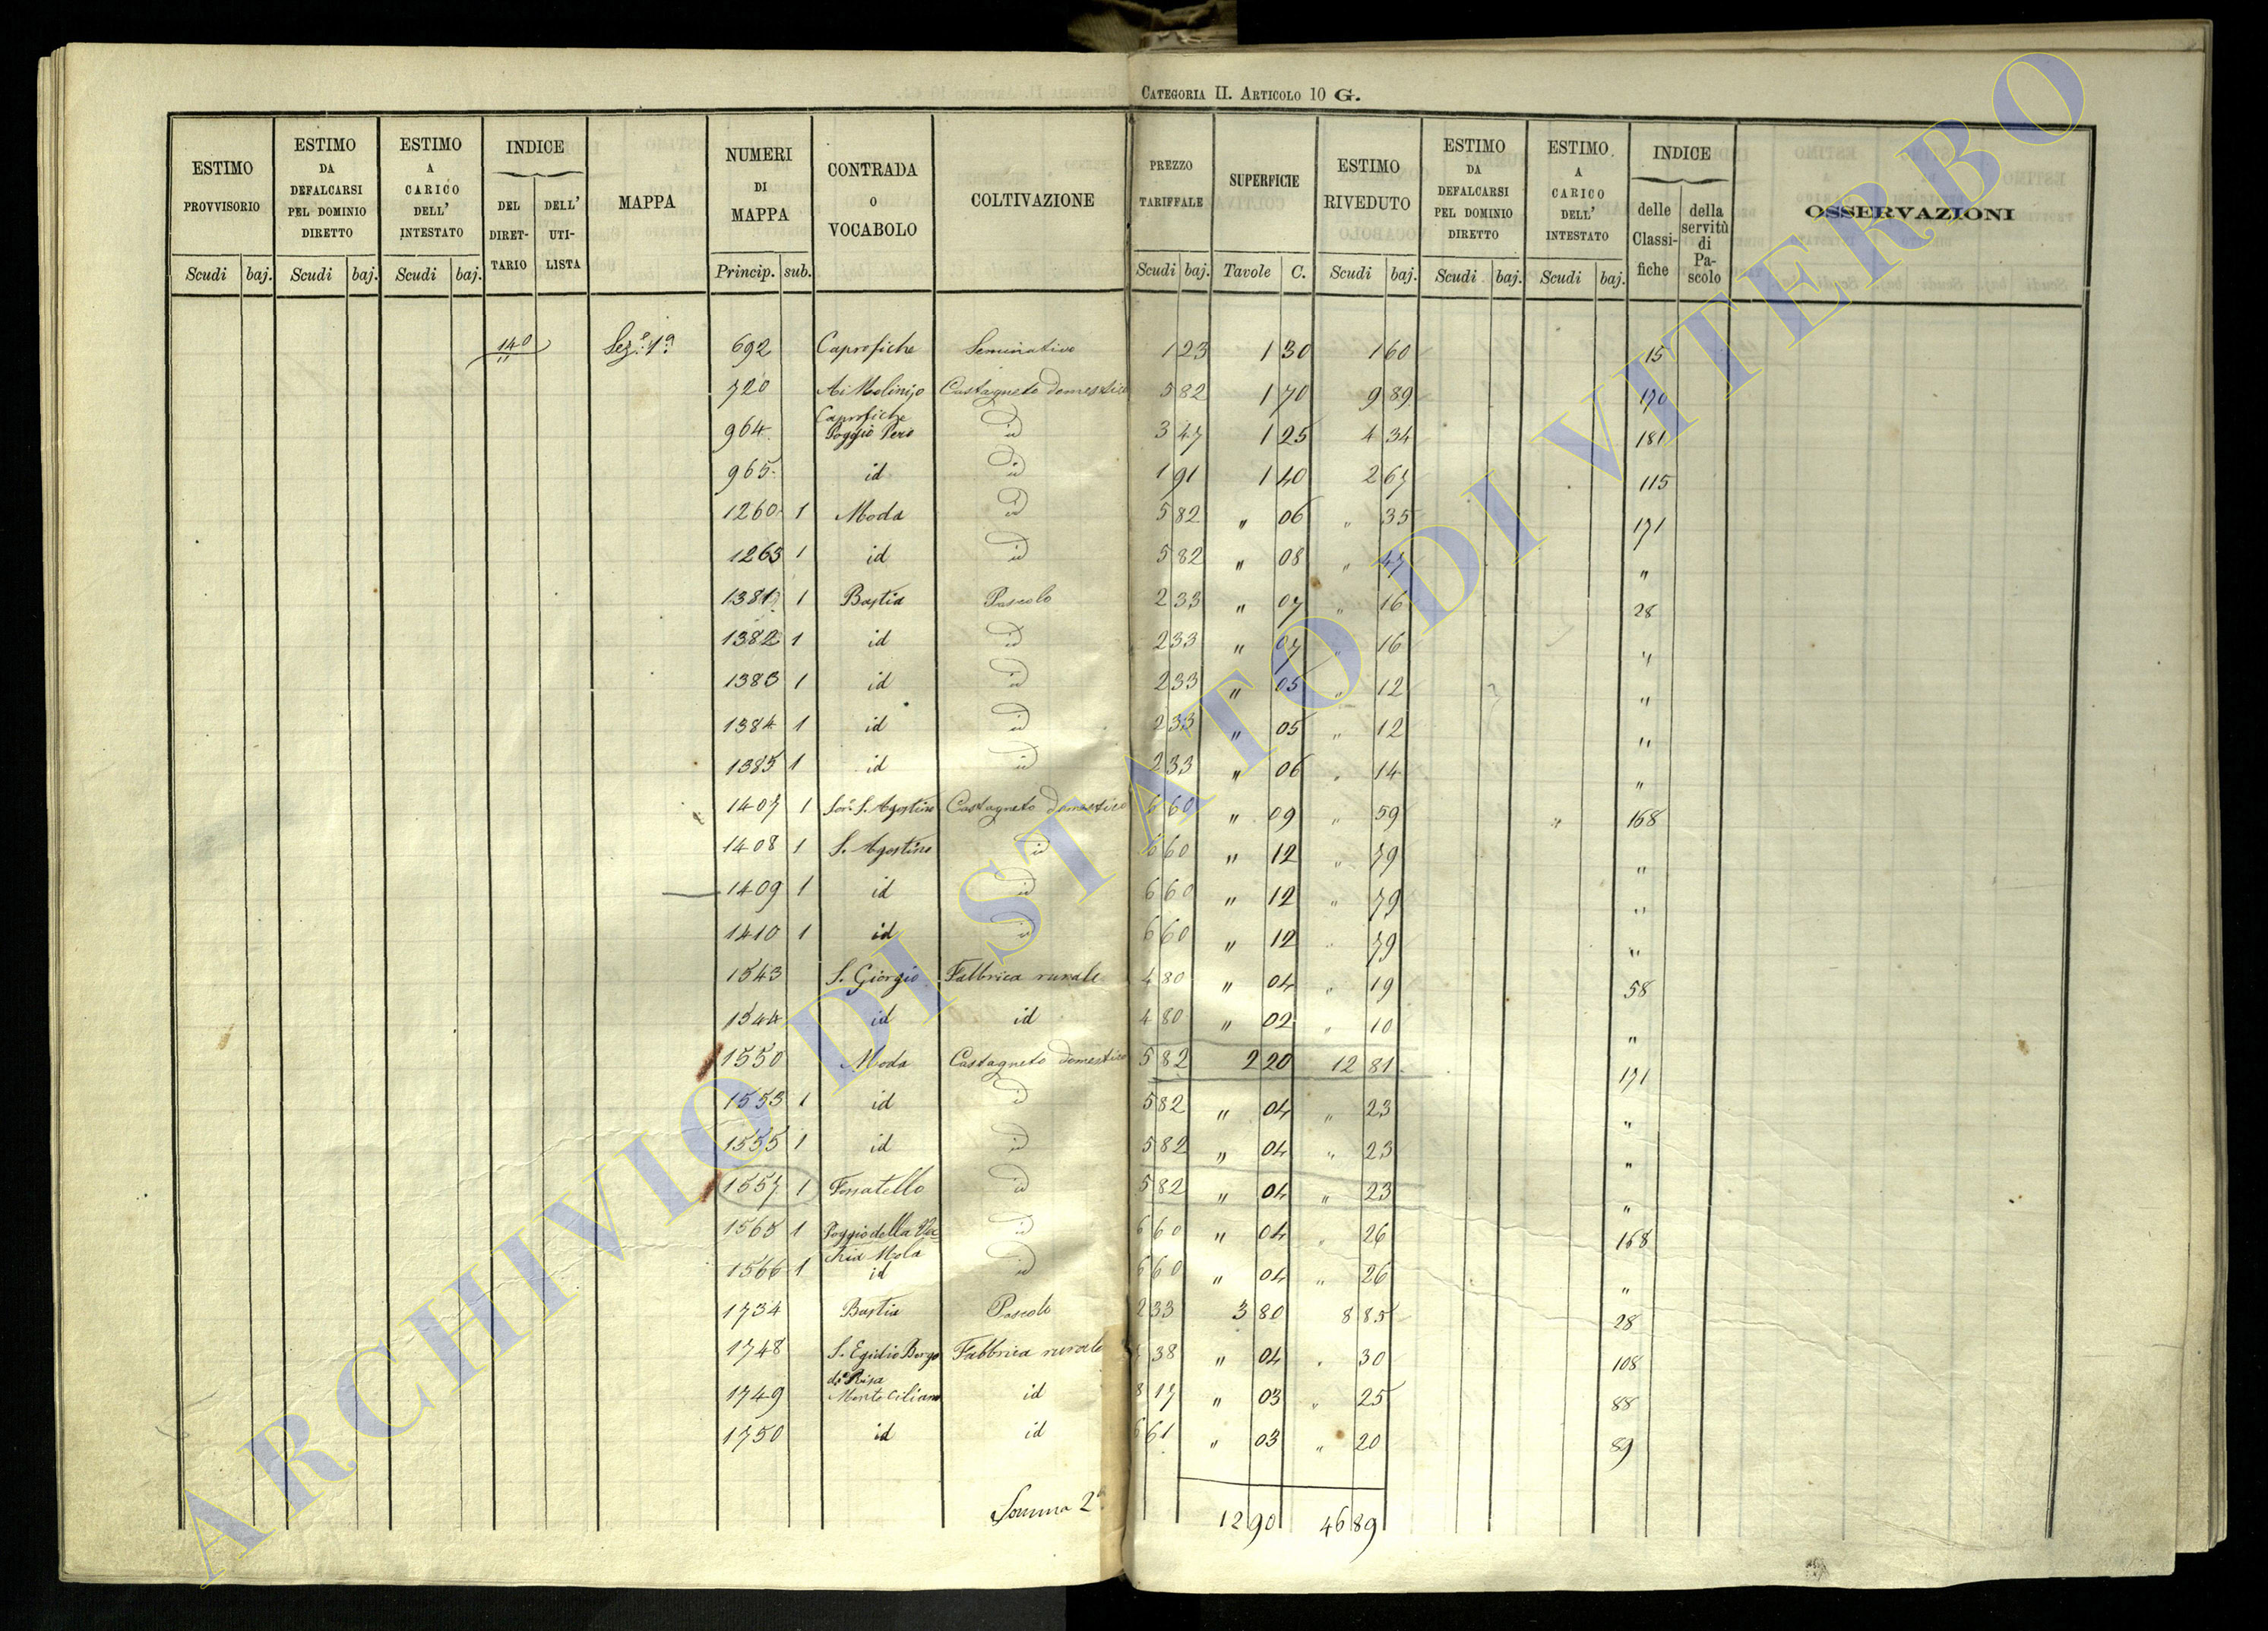 CATEGORIA II. ARTICOLO 10 G.
ESTIMO PROVVISORIO Scudi baj.
ESTIMO DA DEFALCARSI PEL DOMINIO DIRETTO Scudi baj.
ESTIMO A CARICO DELL' INTESTATO Scudi baj.
INDICE DEL DIRET-TARIO DELL' UTI-LISTA
MAPPA
NUMERI DI MAPPA Princip. sub.
CONTRADA O VOCABOLO
COLTIVAZIONE
PREZZO TARIFFALE Scudi baj.
SUPERFICIE Tavole C.
ESTIMO RIVEDUTO Scudi baj.
ESTIMO DA DEFALCARSI PEL DOMINIO DIRETTO Scudi baj.
ESTIMO A CARICO DELL' INTESTATO Scudi baj.
INDICE delle Classi-fiche della servitù di Pa-scolo
OSSERVAZIONI
140 Sez.e 1a 692 Caprofiche Seminativo 1 23 1 30 1 60 15
720 Ai Molinijo Castagneto domestico 5 82 1 70 9 89 170
964 Caprofiche Poggio Pero id 3 47 1 25 4 34 181
965 id id 1 91 1 40 2 67 115
1260 1 Moda id 5 82 " 06 " 35 171
1263 1 id id 5 82 " 08 " 47 "
1381 1 Bastia Pascolo 2 33 " 07 " 16 28
1382 1 id id 2 33 " 07 " 16 "
1383 1 id id 2 33 " 05 " 12 "
1384 1 id id 2 33 " 05 " 12 "
1385 1 id id 2 33 " 06 " 14 "
1407 1 S. Agostino Castagneto domestico 6 60 " 09 " 59 168
1408 1 S. Agostino id 6 60 " 12 " 79 "
1409 1 id id 6 60 " 12 " 79 "
1410 1 id id 6 60 " 12 " 79 "
1543 S. Giorgio Fabbrica rurale 4 80 " 04 " 19 58
1544 id id 4 80 " 02 " 10 "
1550 Moda Castagneto domestico 5 82 2 20 12 81 171
1553 1 id id 5 82 " 04 " 23 "
1555 1 id id 5 82 " 04 " 23 "
1557 1 Fossatello id 5 82 " 04 " 23 "
1565 1 Poggio della Vec- id 6 60 " 04 " 26 168
chia Mola
1566 1 id id 6 60 " 04 " 26 "
1734 Bastia Pascolo 2 33 3 80 8 85 28
1748 S. Egidio Borgo Fabbrica rurale 38 " 04 " 30 108
di Pisa
1749 Monte Ciliano id 8 17 " 03 " 25 88
1750 id id 6 61 " 03 " 20 89
Somma 2a 12 90 46 89
ARCHIVIO DI STATO DI VITERBO